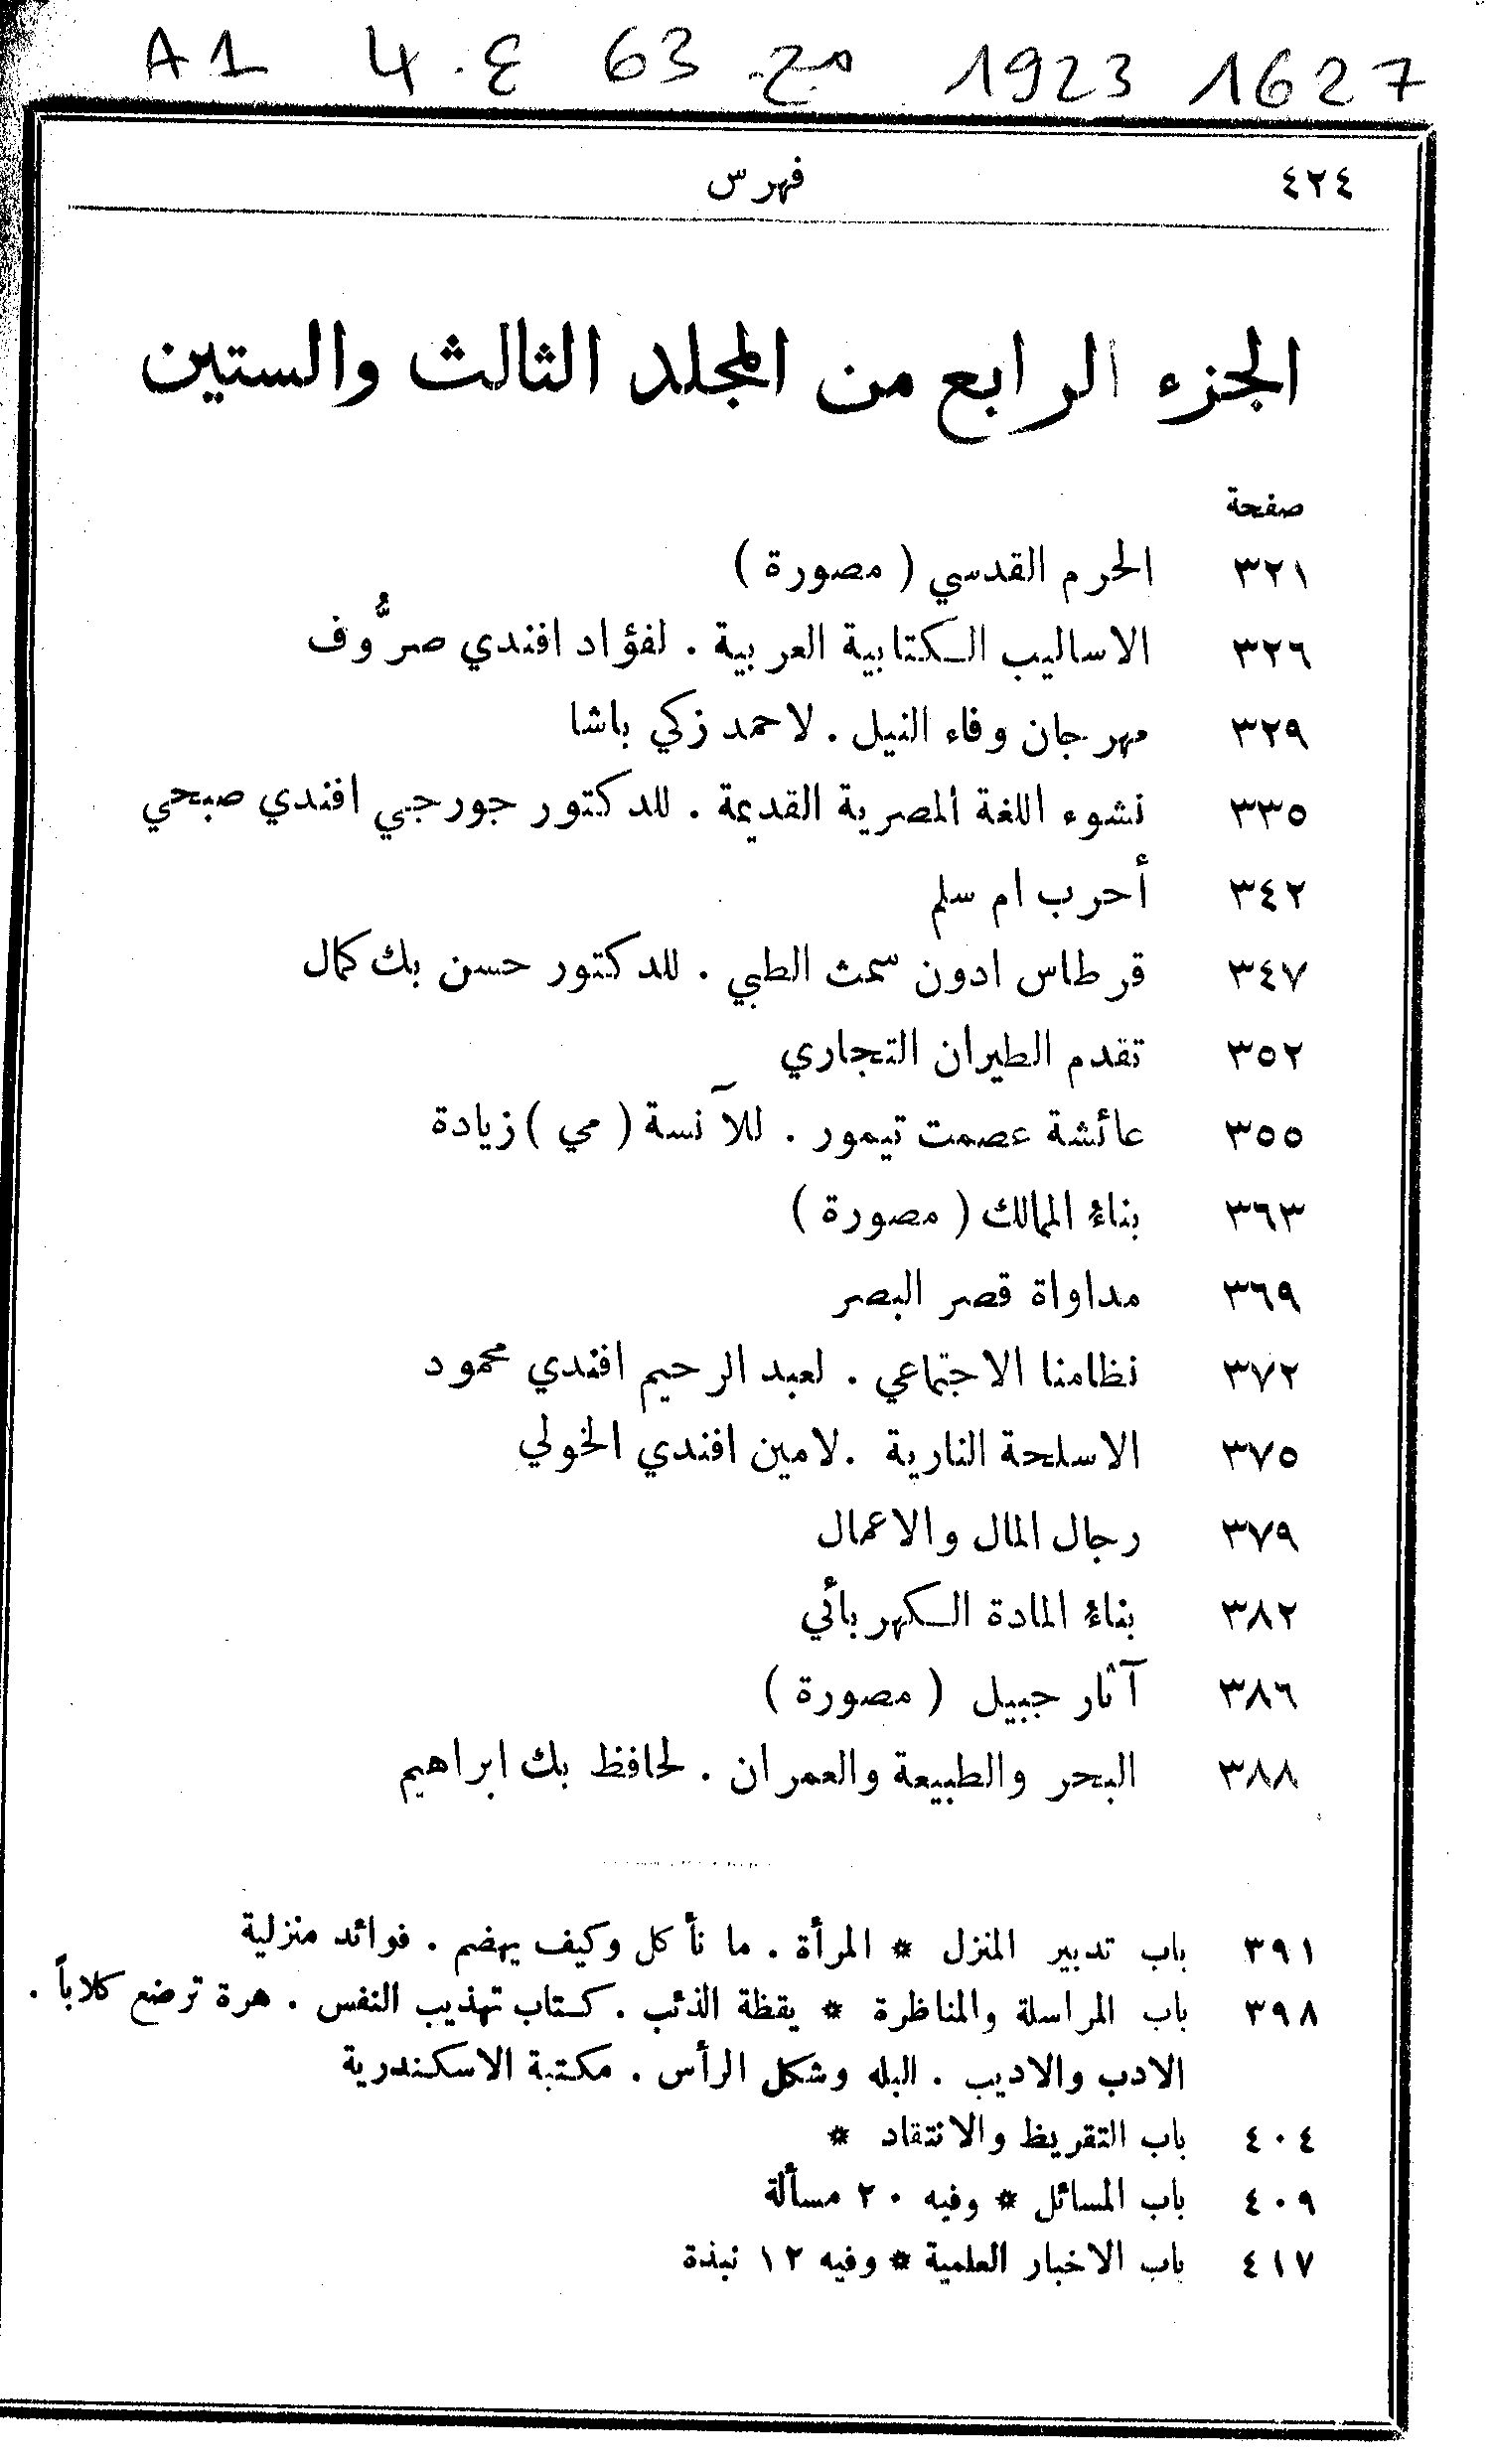 A1 4 .ع 63 مج. 1923 1627
٤٢٤ فهرس
الجزء الرابع من المجلد الثالث والستين
صفحة
٣٢١ الحرم القدسي ( مصورة )
٣٢٦ الاساليب الكتابية العربية . لفؤاد افندي صرُّوف
٣٢٩ مهرجان وفاء النيل . لاحمد زكي باشا
٣٣٥ نشوء اللغة المصرية القديمة . للدكتور جورجي افندي صبحي
٣٤٢ أحرب ام سلم
٣٤٧ قرطاس ادون سمث الطبي . للدكتور حسن بك كمال
٣٥٢ تقدم الطيران التجاري
٣٥٥ عائشة عصمت تيمور . للآنسة ( مي ) زيادة
٣٦٣ بناءُ الممالك ( مصورة )
٣٦٩ مداواة قصر البصر
٣٧٢ نظامنا الاجتماعي . لعبد الرحيم افندي محمود
٣٧٥ الاسلحة النارية . لامين افندي الخولي
٣٧٩ رجال المال والاعمال
٣٨٢ بناءُ المادة الكهربائي
٣٨٦ آثار جبيل ( مصورة )
٣٨٨ البحر والطبيعة والعمران . لحافظ بك ابراهيم
٣٩١ باب تدبير المنزل * المرأة . ما نأكل وكيف يهضم . فوائد منزلية
٣٩٨ باب المراسلة والمناظرة * يقظة الذئب . كتاب تهذيب النفس . هرة ترضع كلاباً .
الادب والاديب . البله وشكل الرأس . مكتبة الاسكندرية
٤٠٤ باب التقريظ والانتقاد *
٤٠٩ باب المسائل * وفيه ٢٠ مسألة
٤١٧ باب الاخبار العلمية * وفيه ١٢ نبذة